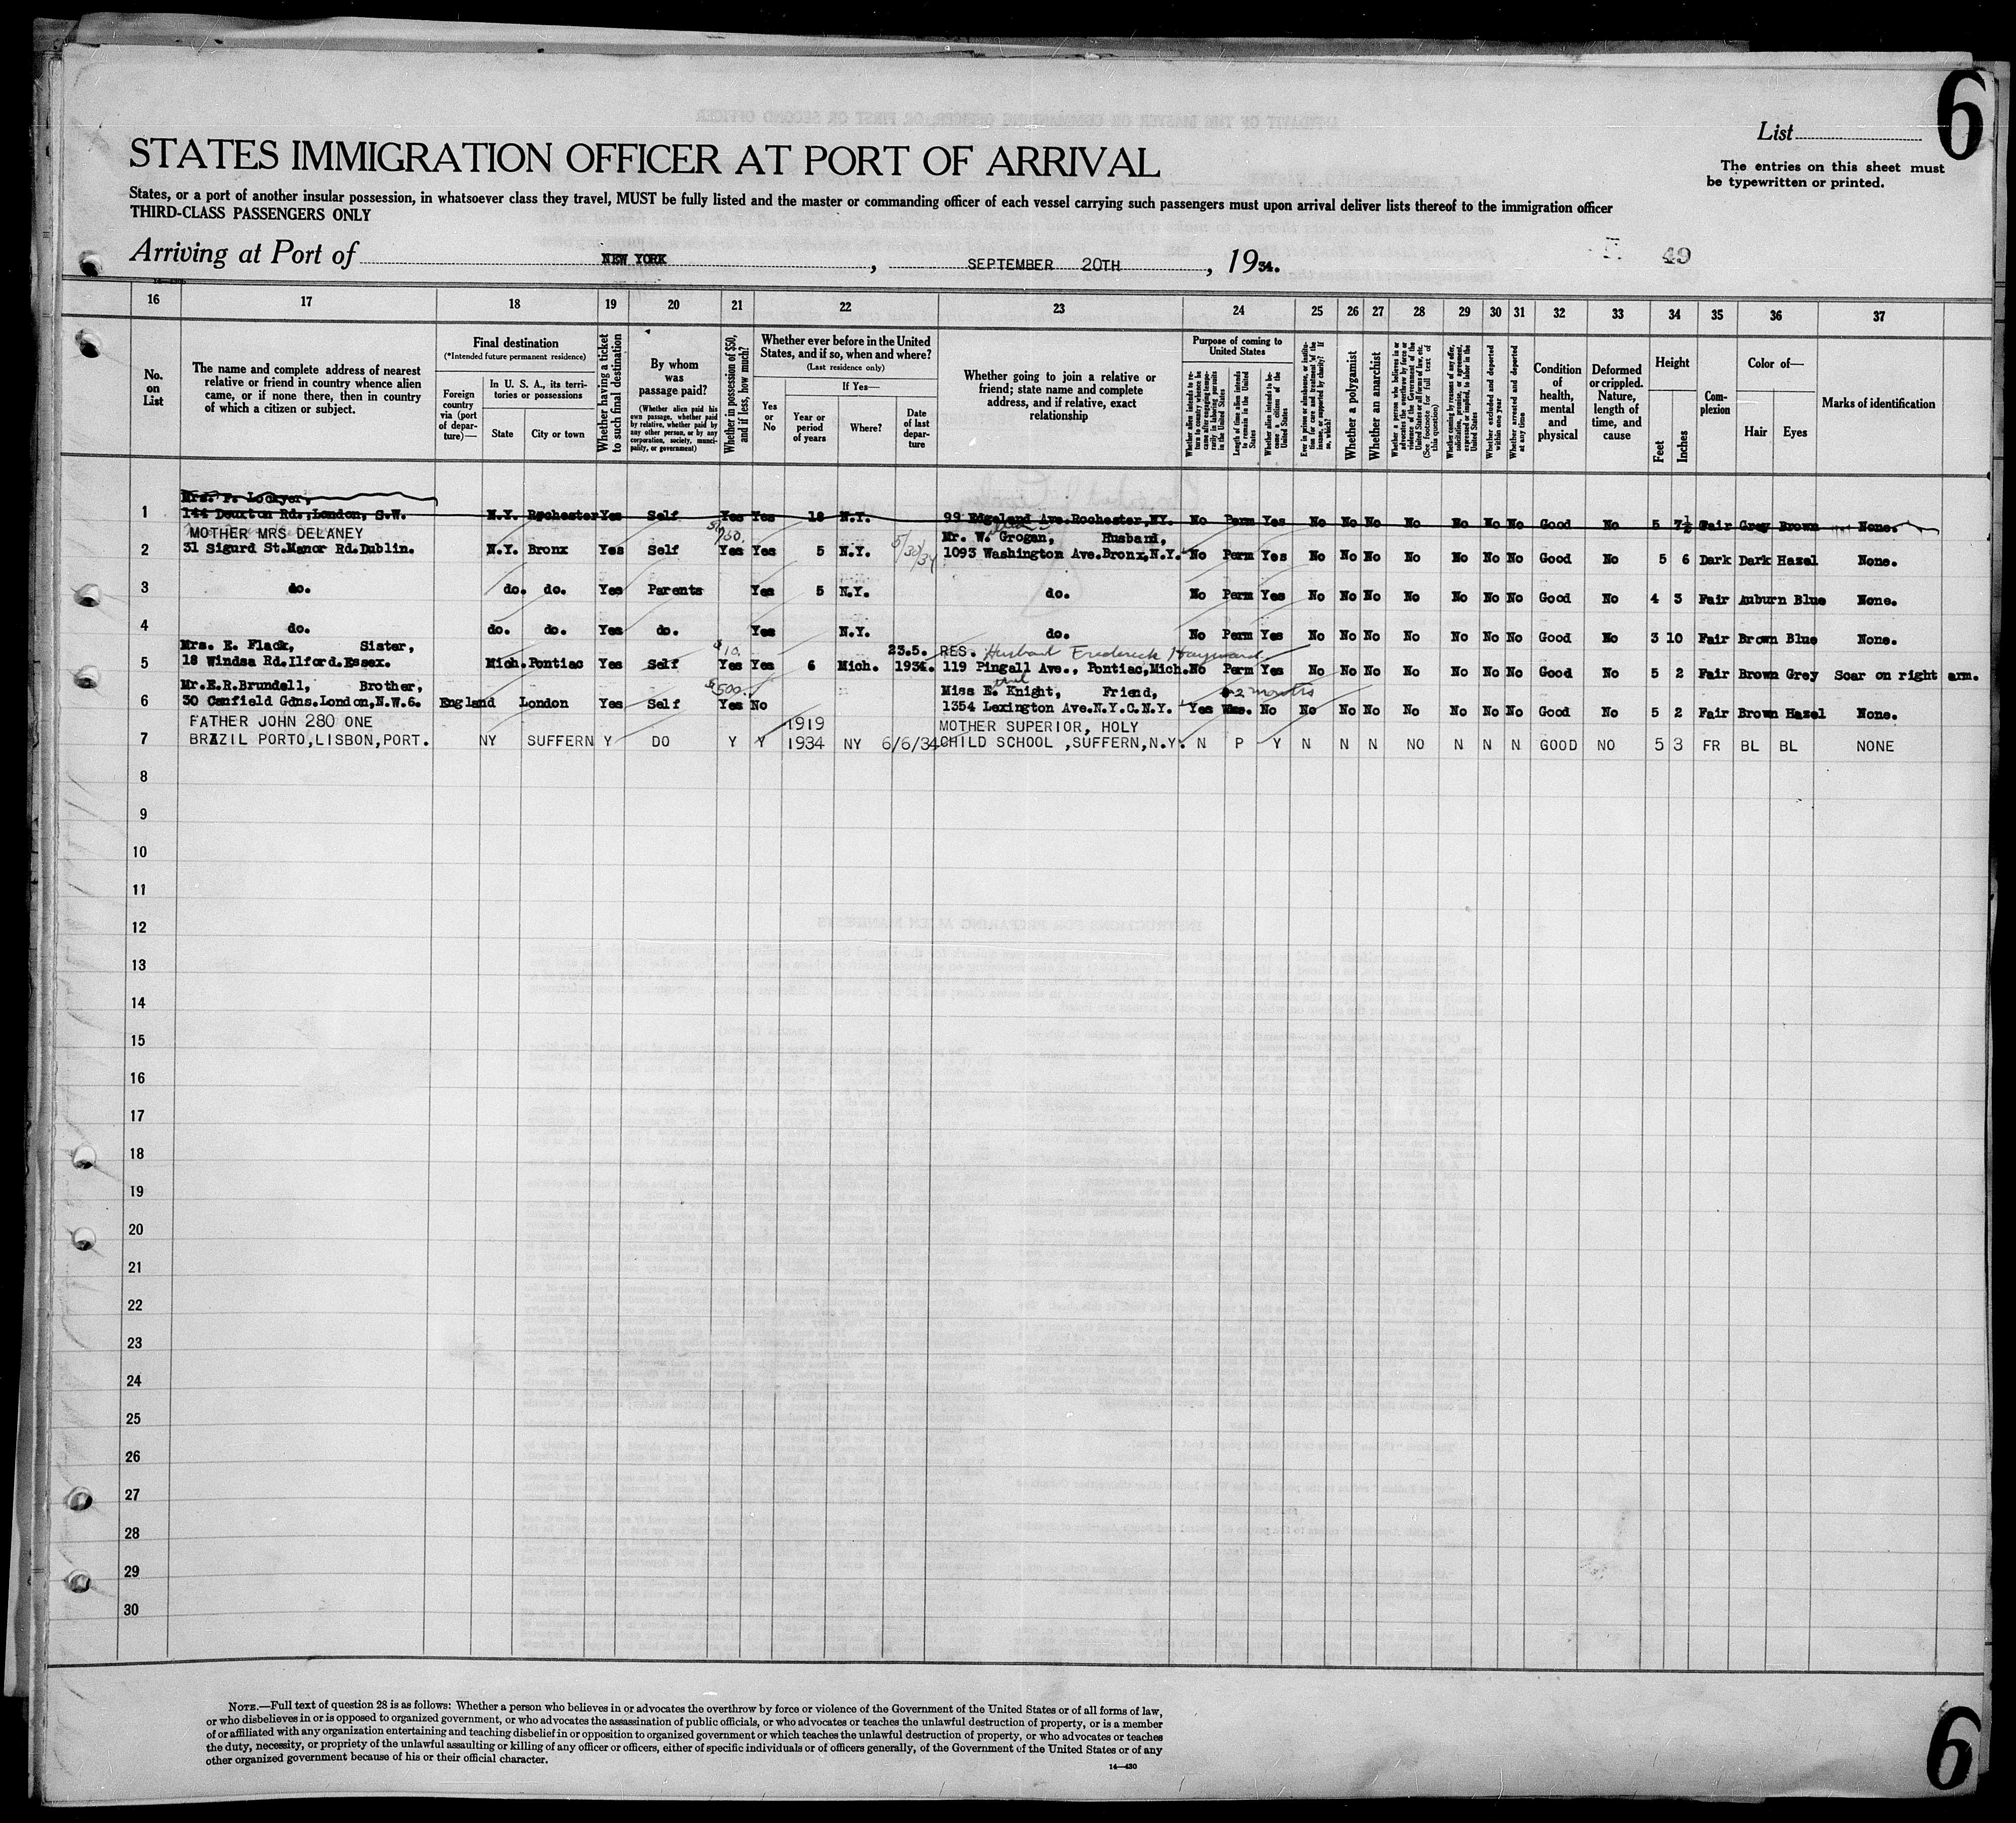 6
List
The entries on this sheet must
be typewritten or printed.
STATES IMMIGRATION OFFICER AT PORT OF ARRIVAL
States, or a port of another insular possession, in whatsoever class they travel, MUST be fully listed and the master or commanding officer of each vessel carrying such passengers must upon arrival deliver lists thereof to the immigration officer
THIRD-CLASS PASSENGERS ONLY
Arriving at Port of NEW YORK, SEPTEMBER 20TH, 1934.
49
16 17 18 19 20 21 22 23 24 25 26 27 28 29 30 31 32 33 34 35 36 37
No. on List
The name and complete address of nearest
relative or friend in country whence alien
came, or if none there, then in country
of which a citizen or subject.
Final destination
(*Intended future permanent residence)
Foreign
country
via (port
of depar-
ture)—
In U. S. A., its terri-
tories or possessions
State
City or town
Whether having a ticket
to such final destination
By whom
was
passage paid?
(Whether alien paid his
own passage, whether paid
by relative, whether paid by
any other person, or by any
corporation, society, munici-
pality, or government)
Whether in possession of $50,
and if less, how much?
Whether ever before in the United
States, and if so, when and where?
(Last residence only)
Yes
or
No
If Yes—
Year or
period
of years
Where?
Date
of last
depar-
ture
Whether going to join a relative or
friend; state name and complete
address, and if relative, exact
relationship
Purpose of coming to
United States
Whether alien intends to re-
turn to country whence he
came after engaging tempo-
rarily in laboring pursuits
in the United States
Length of time alien intends
to remain in the United
States
Whether alien intends to be-
come a citizen of the
United States
Ever in prison or almshouse, or institu-
tion for care and treatment of the
insane, or supported by charity? If
so, which?
Whether a polygamist
Whether an anarchist
Whether a person who believes in or
advocates the overthrow by force or
violence of the Government of the
United States or all forms of law, etc.
(See footnote for full text of
this question)
Whether coming by reasons of any offer,
solicitation, promise, or agreement,
expressed or implied, to labor in the
United States
Whether excluded and deported
within one year
Whether arrested and deported
at any time
Condition
of
health,
mental
and
physical
Deformed
or crippled.
Nature,
length of
time, and
cause
Height
Feet
Inches
Com-
plexion
Color of—
Hair
Eyes
Marks of identification
Mrs. F. Lockyer,
1 144 Douxton Rd.,London, S.W. N.Y. Rochester Yes Self Yes Yes 18 N.Y. 99 Edgeland Ave.Rochester,NY. No Perm Yes No No No No No No No Good No 5 7½ Fair Grey Brown None.
MOTHER MRS DELANEY Mr. W. Grogan, Husband,
2 31 Sigurd St.Manor Rd.Dublin. N.Y. Bronx Yes Self Yes Yes 5 N.Y. 5/30/34 1093 Washington Ave.Bronx,N.Y. No Perm Yes No No No No No No No Good No 5 6 Dark Dark Hazel None.
3 do. do. do. Yes Parents Yes 5 N.Y. do. No Perm Yes No No No No No No No Good No 4 3 Fair Auburn Blue None.
4 do. do. do. Yes do. Yes N.Y. do. No Perm Yes No No No No No No No Good No 3 10 Fair Brown Blue None.
Mrs. E. Flack, Sister, $10. 23.5. RES. Husband Frederick Hayward
5 18 Windsa Rd.Ilford.Essex. Mich. Pontiac Yes Self Yes Yes 6 Mich. 1934. 119 Pingall Ave., Pontiac,Mich. No Perm Yes No No No No No No No Good No 5 2 Fair Brown Grey Scar on right arm.
Mr.E.R.Brundell, Brother, $500. Miss E. Knight, Friend, 2 months
6 30 Canfield Gdns.London,N.W.6. England London Yes Self Yes No 1354 Lexington Ave.N.Y.C.N.Y. Yes No No No No No No No No Good No 5 2 Fair Brown Hazel None.
FATHER JOHN 280 ONE 1919 MOTHER SUPERIOR, HOLY
7 BRAZIL PORTO,LISBON,PORT. NY SUFFERN Y DO Y Y 1934 NY 6/6/34 CHILD SCHOOL ,SUFFERN,N.Y. N P Y N N N NO N N N GOOD NO 5 3 FR BL BL NONE
8
9
10
11
12
13
14
15
16
17
18
19
20
21
22
23
24
25
26
27
28
29
30
NOTE.—Full text of question 28 is as follows: Whether a person who believes in or advocates the overthrow by force or violence of the Government of the United States or of all forms of law,
or who disbelieves in or is opposed to organized government, or who advocates the assassination of public officials, or who advocates or teaches the unlawful destruction of property, or is a member
of or affiliated with any organization entertaining and teaching disbelief in or opposition to organized government or which teaches the unlawful destruction of property, or who advocates or teaches
the duty, necessity, or propriety of the unlawful assaulting or killing of any officer or officers, either of specific individuals or of officers generally, of the Government of the United States or of any
other organized government because of his or their official character.
14—430
6